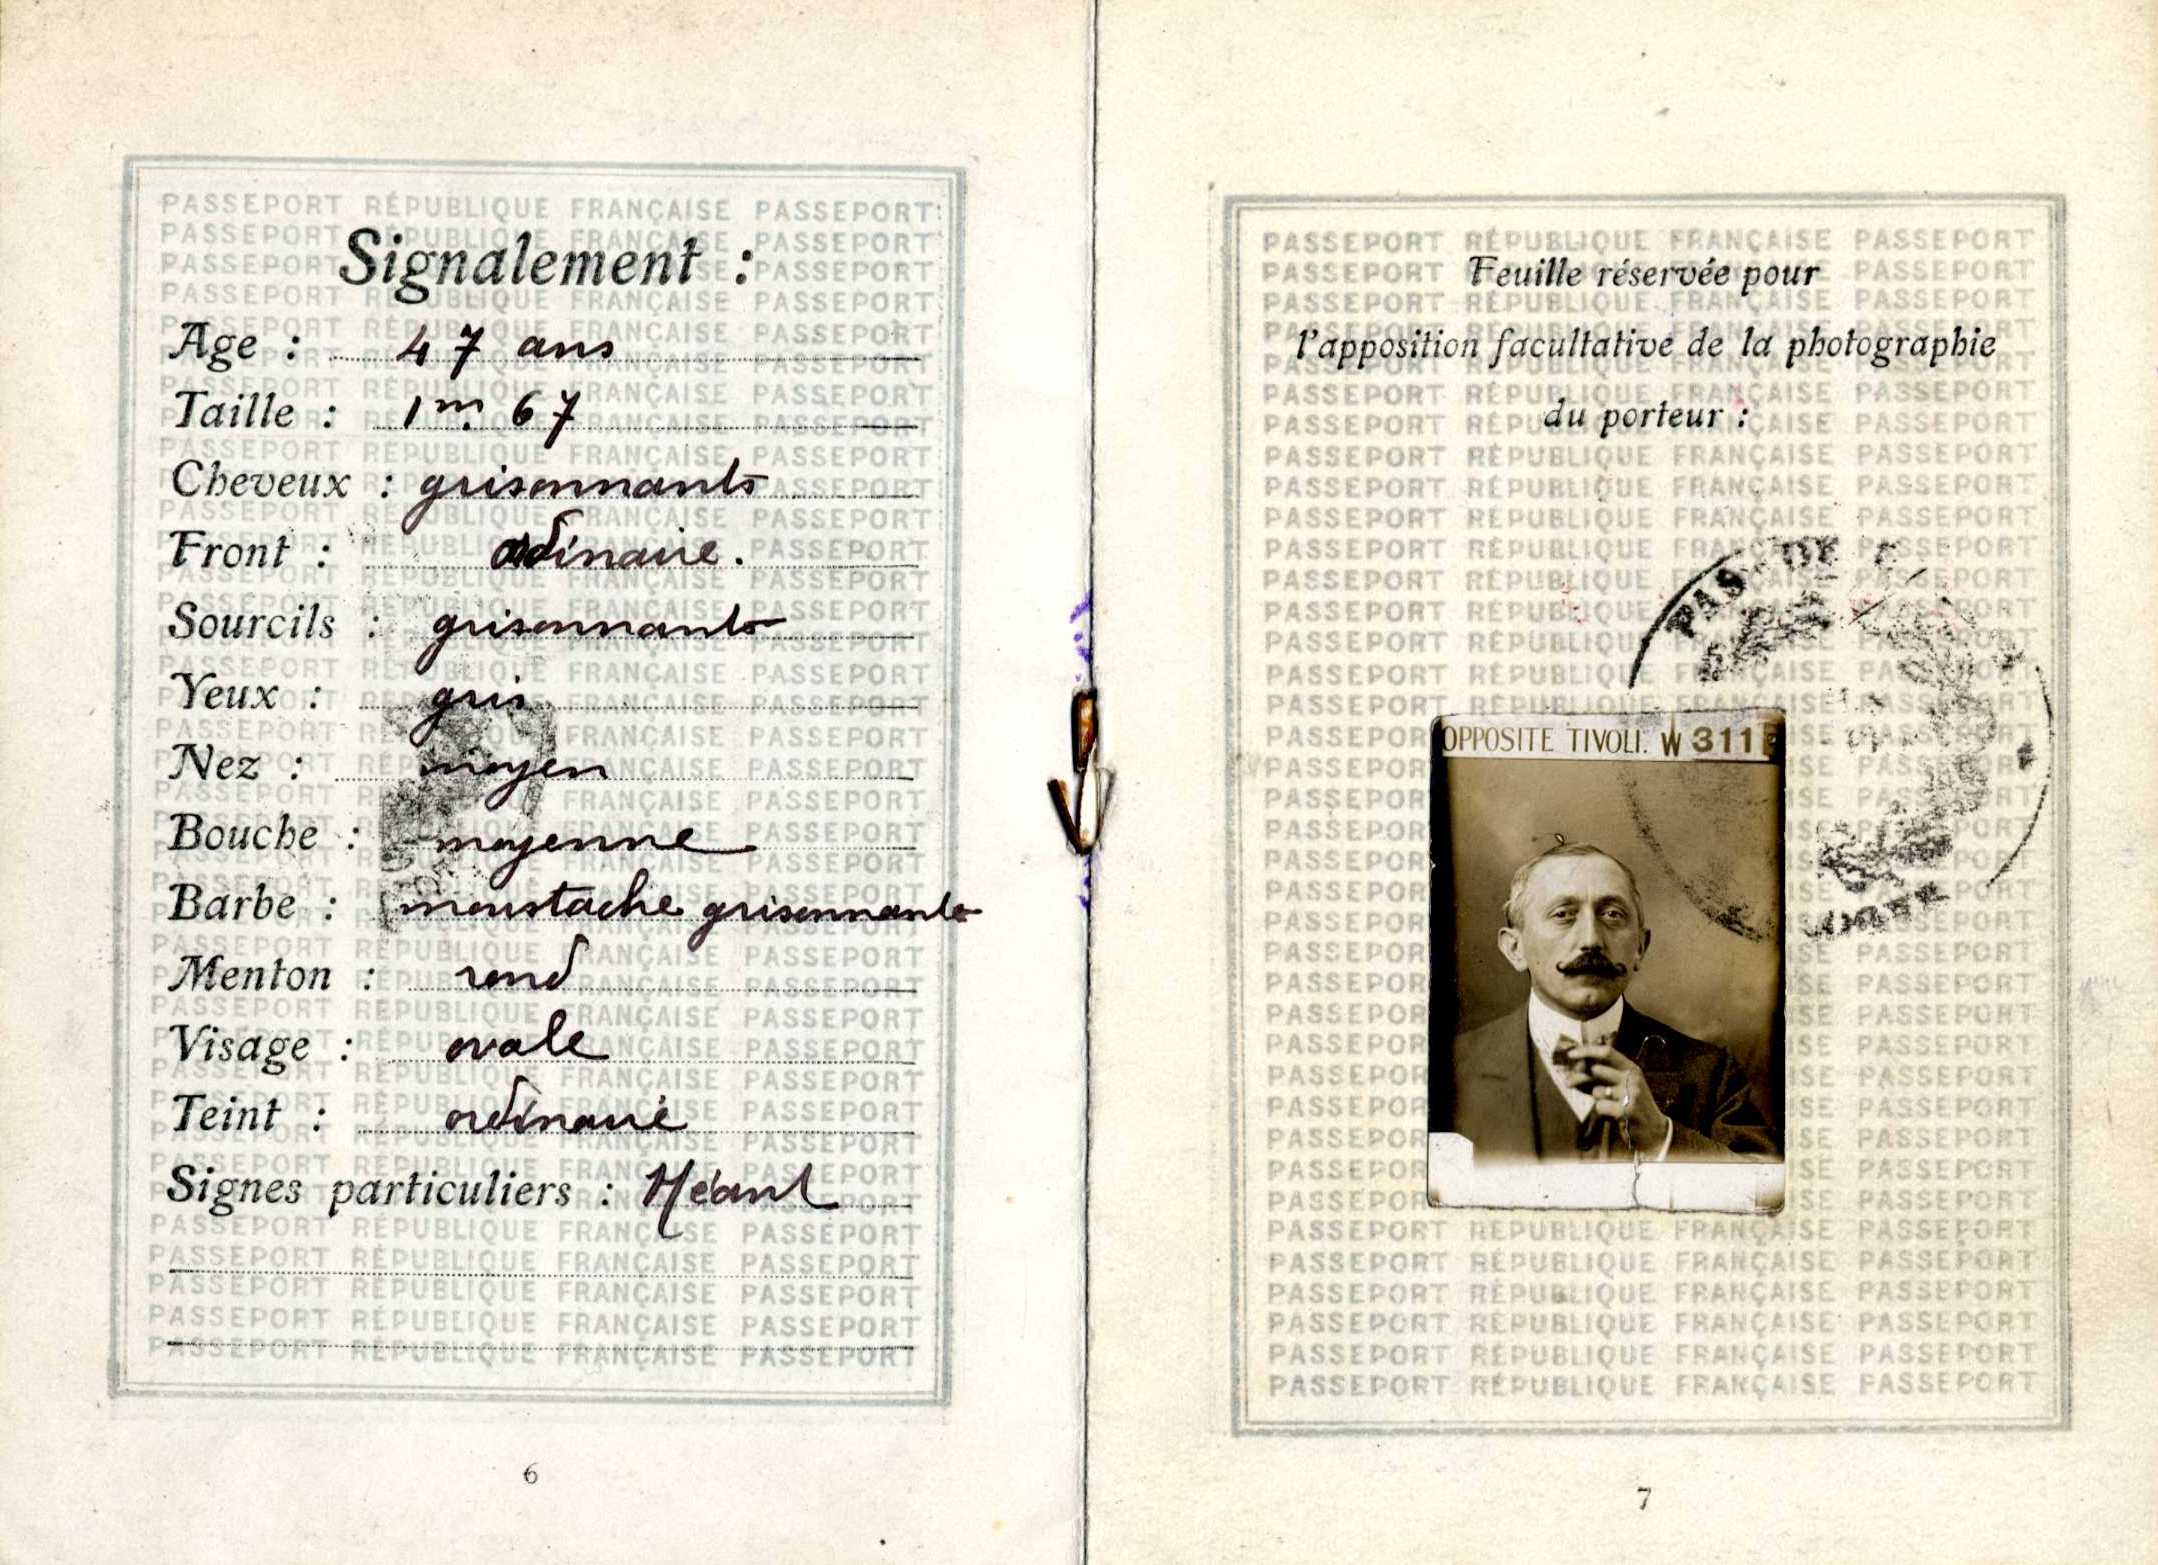 Signalement :
Age : 47 ans
Taille : 1m. 67
Cheveux : grisonnants
Front : ordinaire.
Sourcils : grisonnants
Yeux : gris
Nez : moyen
Bouche : moyenne
Barbe : moustache grisonnante
Menton : rond
Visage : ovale
Teint : ordinaire
Signes particuliers : Néant
6
PASSEPORT RÉPUBLIQUE FRANÇAISE PASSEPORT
Feuille réservée pour
l'apposition facultative de la photographie
du porteur :
PAS-DE-
OPPOSITE TIVOLI. W 311
7